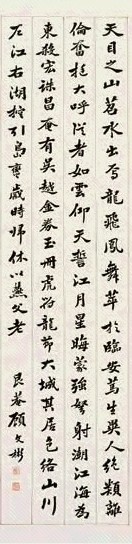 天目之山苕水出焉龍飛鳳舞萃於臨安篤生異人絕類離
倫奮挺大呼從者如雲仰天誓江月星晦蒙強弩射潮江海為
東殺宏誅昌奄有吳越金券玉冊虎符龍節大城其居包絡山川
左江右湖控引島蠻歲時歸休以燕父老
艮菴顧文彬